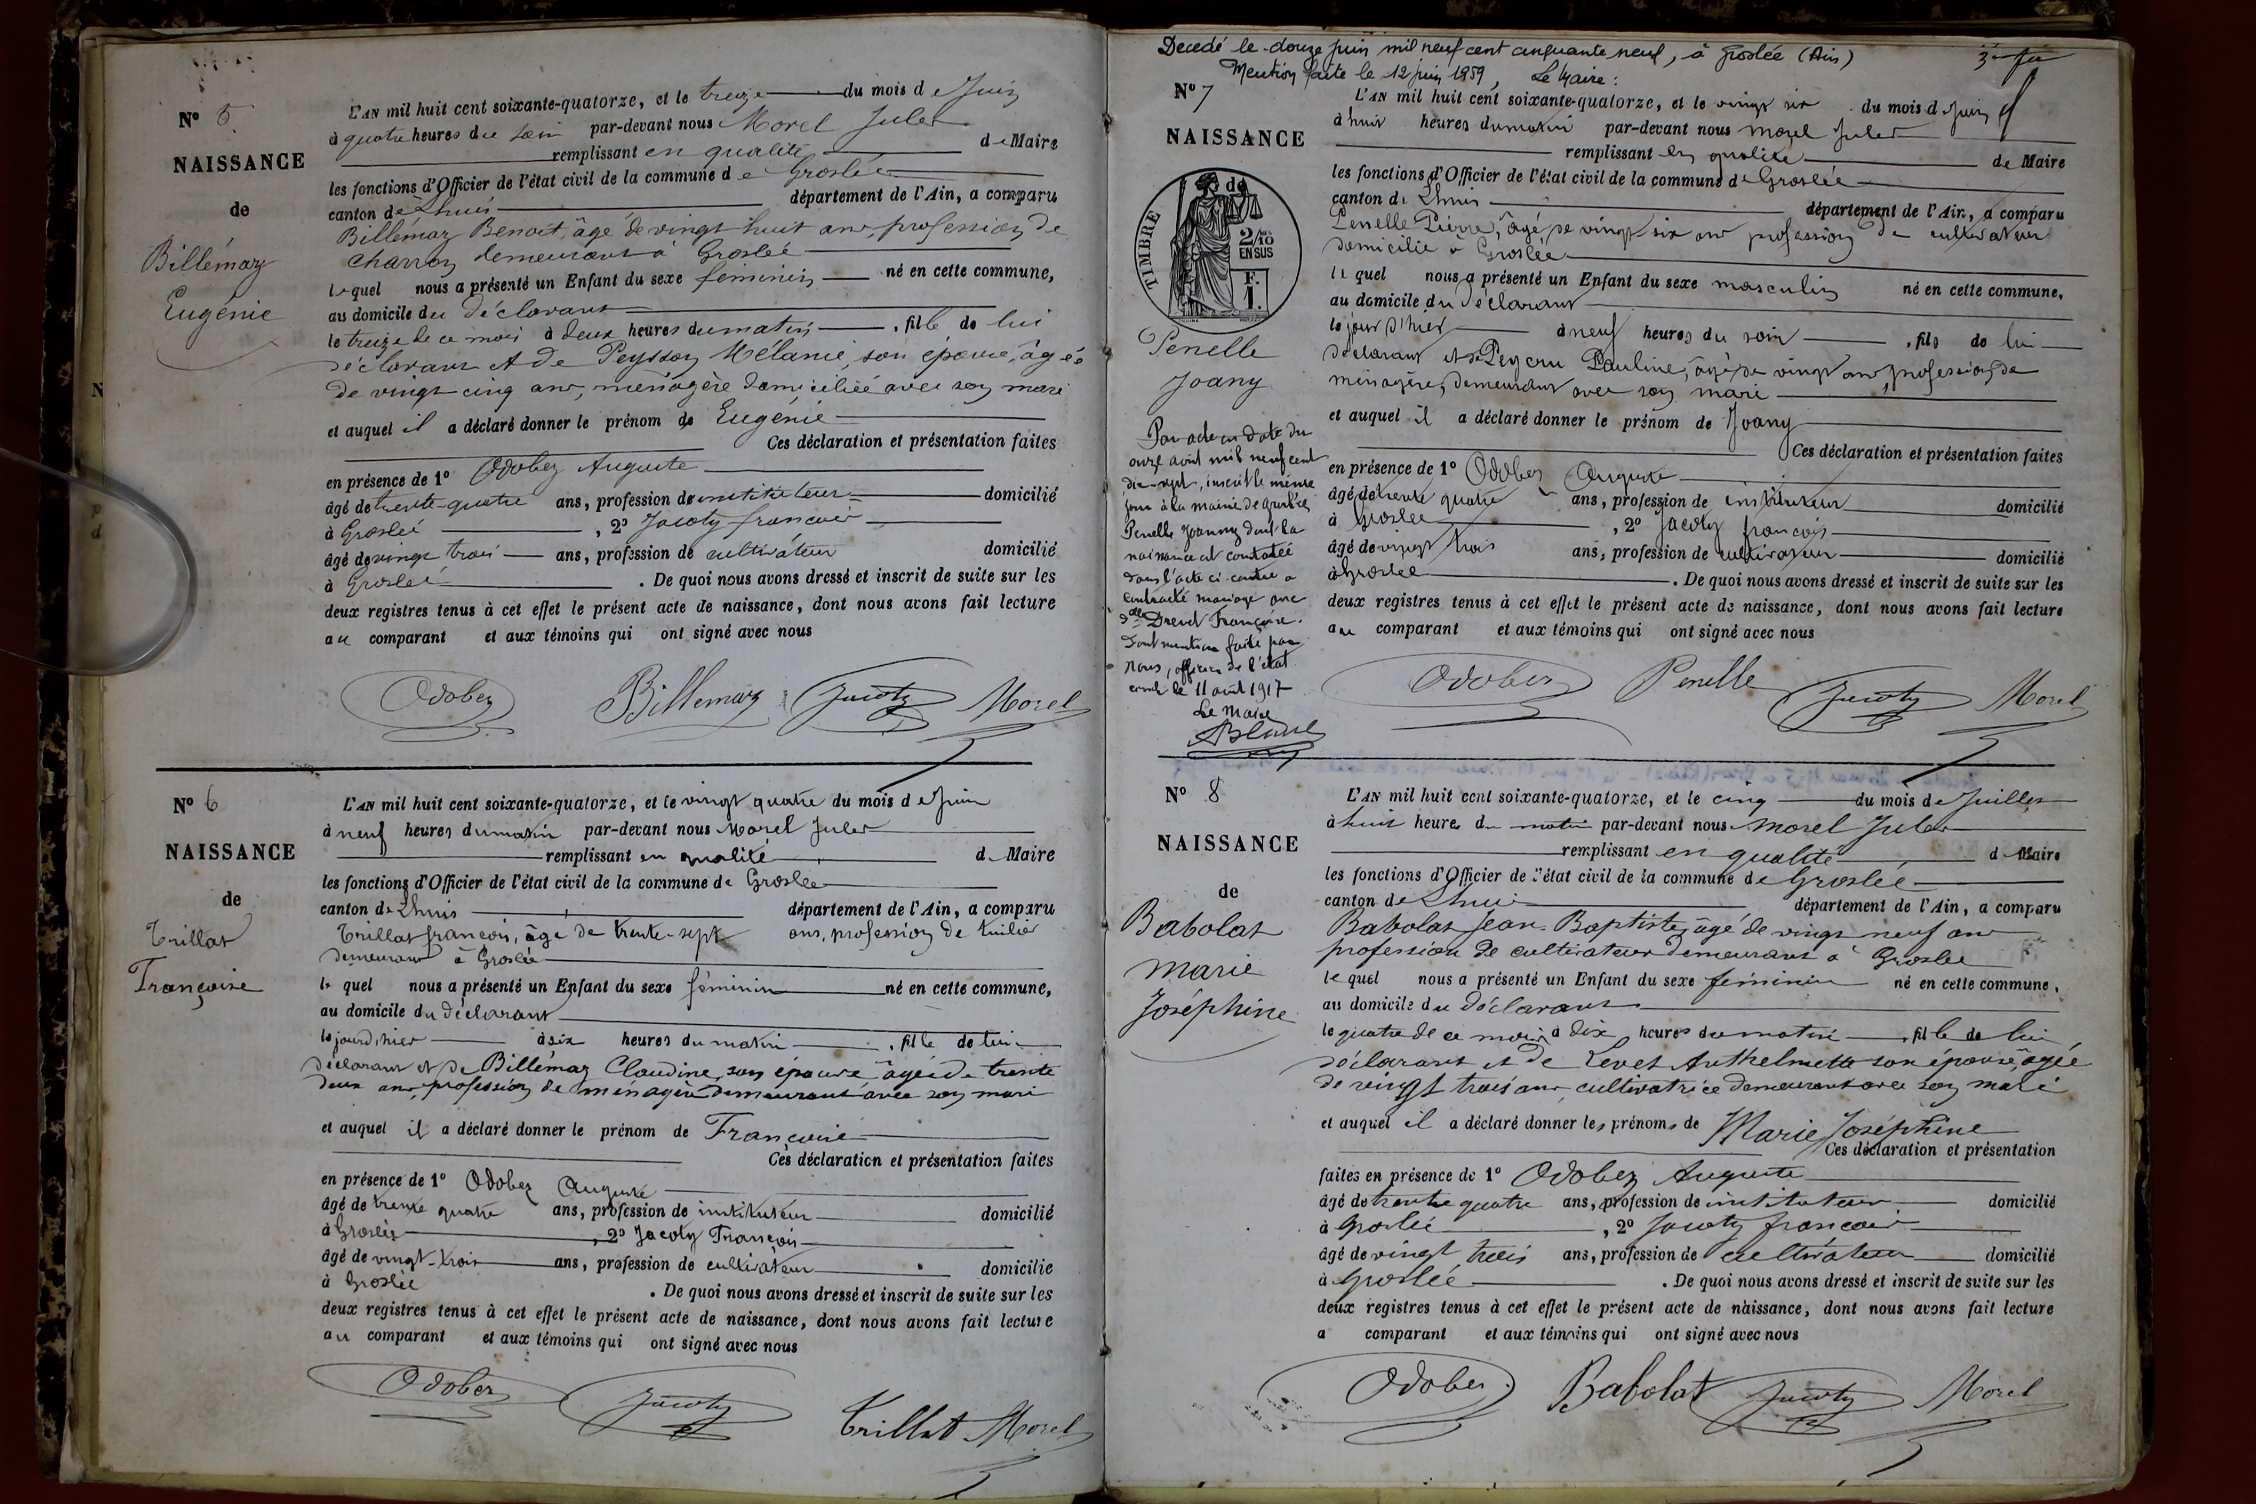 Nº 5
NAISSANCE
de
Billémaz
Eugénie
L'AN mil huit cent soixante-quatorze, et le treize du mois de Juin
à quatre heures du soir par-devant nous Morel Jules
remplissant en qualité de Maire
les fonctions d'Officier de l'état civil de la commune de Groslée
canton de Lhuis département de l'Ain, a comparu
Billémaz Benoit, âgé de vingt huit ans, profession de
charron demeurant à Groslée
lequel nous a présenté un Enfant du sexe féminin né en cette commune,
au domicile du déclarant
le treize de ce mois à deux heures du matin, fille de lui
déclarant et de Peysson Mélanie, son épouse, âgée
de vingt cinq ans, ménagère domiciliée avec son mari
et auquel il a déclaré donner le prénom de Eugénie
Ces déclaration et présentation faites
en présence de 1º Odobez Auguste
âgé de trente-quatre ans, profession de instituteur domicilié
à Groslée, 2º Jacoty françois
âgé de vingt trois ans, profession de cultivateur domicilié
à Groslée. De quoi nous avons dressé et inscrit de suite sur les
deux registres tenus à cet effet le présent acte de naissance, dont nous avons fait lecture
au comparant et aux témoins qui ont signé avec nous
Odobez Billemaz Jacoty Morel
Nº 6
NAISSANCE
de
Trillat
Françoise
L'AN mil huit cent soixante-quatorze, et le vingt quatre du mois de Juin
à neuf heures du matin par-devant nous Morel Jules
remplissant en qualité de Maire
les fonctions d'Officier de l'état civil de la commune de Groslée
canton de Lhuis département de l'Ain, a comparu
Trillat françois, âgé de trente-sept ans, profession de tuilier
demeurant à Groslée
lequel nous a présenté un Enfant du sexe féminin né en cette commune,
au domicile du déclarant
le jour d'hier à six heures du matin, fille de lui
déclarant et de Billémaz Claudine, son épouse âgée de trente
deux ans, profession de ménagère demeurant avec son mari
et auquel il a déclaré donner le prénom de Françoise
Ces déclaration et présentation faites
en présence de 1º Odobez Auguste
âgé de trente quatre ans, profession de instituteur domicilié
à Groslée, 2º Jacoty François
âgé de vingt-trois ans, profession de cultivateur domicilié
à Groslée. De quoi nous avons dressé et inscrit de suite sur les
deux registres tenus à cet effet le présent acte de naissance, dont nous avons fait lecture
au comparant et aux témoins qui ont signé avec nous
Odobez Jacoty Trillat Morel
Décédé le douze juin mil neuf cent cinquante neuf, à Groslée (Ain)
Mention faite le 12 juin 1959, Le Maire :
Nº 7
NAISSANCE
de
TIMBRE
2/10
EN SUS
F.
1.
Penelle
Joany
Par acte en date du
onze août mil neuf cent
dix-sept, inscrit le même
jour à la mairie de Groslée,
Penelle Joanny dont la
naissance est constatée
dans l'acte ci-contre a
contracté mariage avec
Dlle Drevet Françoise.
Dont mention faite par
Nous, officier de l'état
civil le 11 août 1917
Le Maire
L'AN mil huit cent soixante-quatorze, et le vingt six du mois de Juin
à huit heures du matin par-devant nous Morel Jules
remplissant en qualité de Maire
les fonctions d'Officier de l'état civil de la commune de Groslée
canton de Lhuis département de l'Ain, a comparu
Penelle Pierre, âgé de vingt six ans profession de cultivateur
domicilié à Groslée
lequel nous a présenté un Enfant du sexe masculin né en cette commune,
au domicile du déclarant
le jour d'hier à neuf heures du soir, fils de lui
déclarant et de Peycru Pauline, âgée de vingt ans, profession de
ménagère, demeurant avec son mari
et auquel il a déclaré donner le prénom de Joany
Ces déclaration et présentation faites
en présence de 1º Odobez Auguste
âgé de trente quatre ans, profession de instituteur domicilié
à Groslée, 2º Jacoty françois
âgé de vingt trois ans, profession de cultivateur domicilié
à Groslée. De quoi nous avons dressé et inscrit de suite sur les
deux registres tenus à cet effet le présent acte de naissance, dont nous avons fait lecture
au comparant et aux témoins qui ont signé avec nous
Odobez Penelle Jacoty Morel
Nº 8
NAISSANCE
de
Babolat
Marie
Joséphine
L'AN mil huit cent soixante-quatorze, et le cinq du mois de Juillet
à huit heures du matin par-devant nous Morel Jules
remplissant en qualité de Maire
les fonctions d'Officier de l'état civil de la commune de Groslée
canton de Lhuis département de l'Ain, a comparu
Babolat Jean-Baptiste, âgé de vingt neuf ans
profession de cultivateur demeurant à Groslée
lequel nous a présenté un Enfant du sexe féminin né en cette commune,
au domicile du déclarant
le quatre de ce mois à dix heures du matin, fille de lui
déclarant et de Levet Anthelmette son épouse, âgée
de vingt trois ans, cultivatrice demeurant avec son mari
et auquel il a déclaré donner les prénoms de Marie Joséphine
Ces déclaration et présentation
faites en présence de 1º Odobez Auguste
âgé de trente quatre ans, profession de instituteur domicilié
à Groslée, 2º Jacoty françois
âgé de vingt trois ans, profession de cultivateur domicilié
à Groslée. De quoi nous avons dressé et inscrit de suite sur les
deux registres tenus à cet effet le présent acte de naissance, dont nous avons fait lecture
a comparant et aux témoins qui ont signé avec nous
Odobez Babolat Jacoty Morel